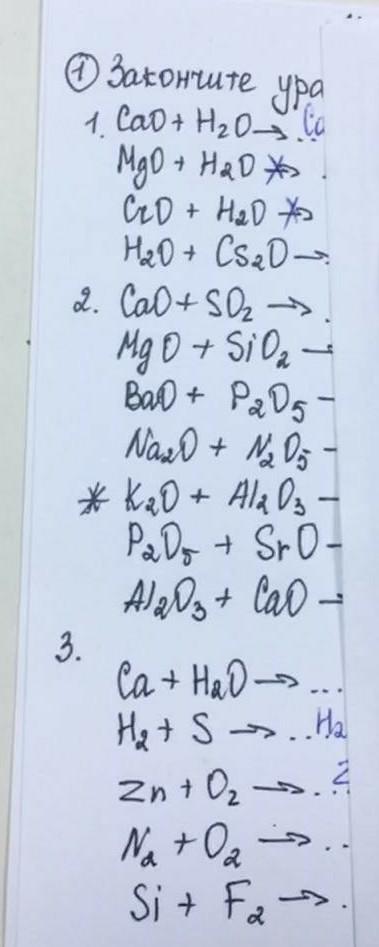 ① Закончите ура
1. CaO + H₂O → Ca
MgO + H₂O ↛ .
CrO + H₂O ↛
H₂O + Cs₂O → .
2. CaO + SO₂ → .
MgO + SiO₂ —
BaO + P₂O₅ –
Na₂O + N₂O₅ –
* K₂O + Al₂O₃ –
P₂O₅ + SrO –
Al₂O₃ + CaO –
3.
Ca + H₂O → ...
H₂ + S → ..H₂
Zn + O₂ → ..Z
N₂ + O₂ → ..
Si + F₂ → .